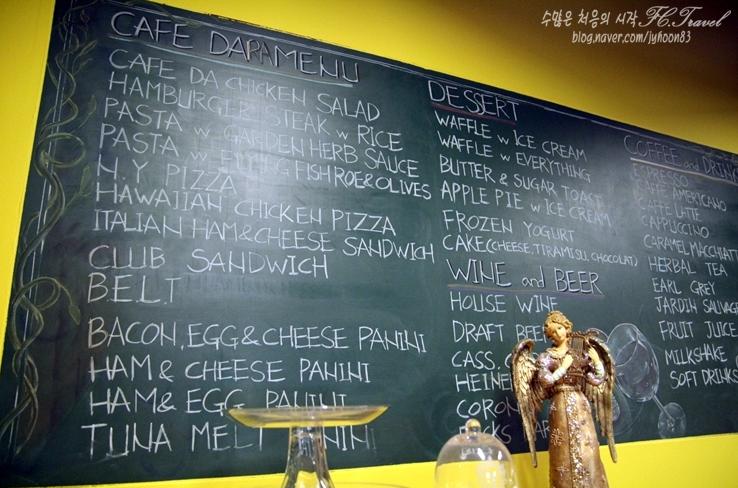 수많은 처음의 시작 H.C.Travel
blog.naver.com/jyhoon83
CAFE DAPAMENU
CAFE DA CHICKEN SALAD
HAMBURGER STEAK w RICE
PASTA w GARDEN HERB SAUCE
PASTA w FISHROE&OLIVES
N.Y PIZZA
HAWAIIAN CHICKEN PIZZA
ITALIAN HAM&CHEESE SANDWICH
CLUB SANDWICH
B.E.L.T
BACON, EGG & CHEESE PANINI
HAM & CHEESE PANINI
HAM & EGG PANINI
TUNA MELT PANINI
DESSERT
WAFFLE w ICE CREAM
WAFFLE w EVERYTHING
BUTTER & SUGAR TOAST
APPLE PIE w ICE CREAM
FROZEN YOGURT
CAKE(CHEESE,TIRAMISU,CHOCOLAT)
WINE and BEER
HOUSE WINE
DRAFT BEE
CASS,
HEINE
CORON
COFFEE and DRINK
ESPRESSO
CAFFE AMERICANO
CAFFE LATTE
CAPPUCCINO
CARAMEL MACCHIATT
HERBAL TEA
EARL GREY
JARDIN SAUVAG
FRUIT JUICE
MILKSHAKE
SOFT DRINKS